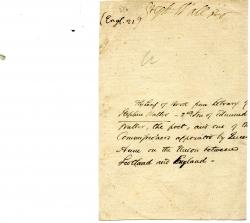 Steph Waller
(Engl. 21)
Flyleaf of book from Library of
Stephen Waller – 2nd Son of Edmund
Waller, the poet, and one of the
Commissioners appointed by Queen
Anne on the Union between
Scotland and England –